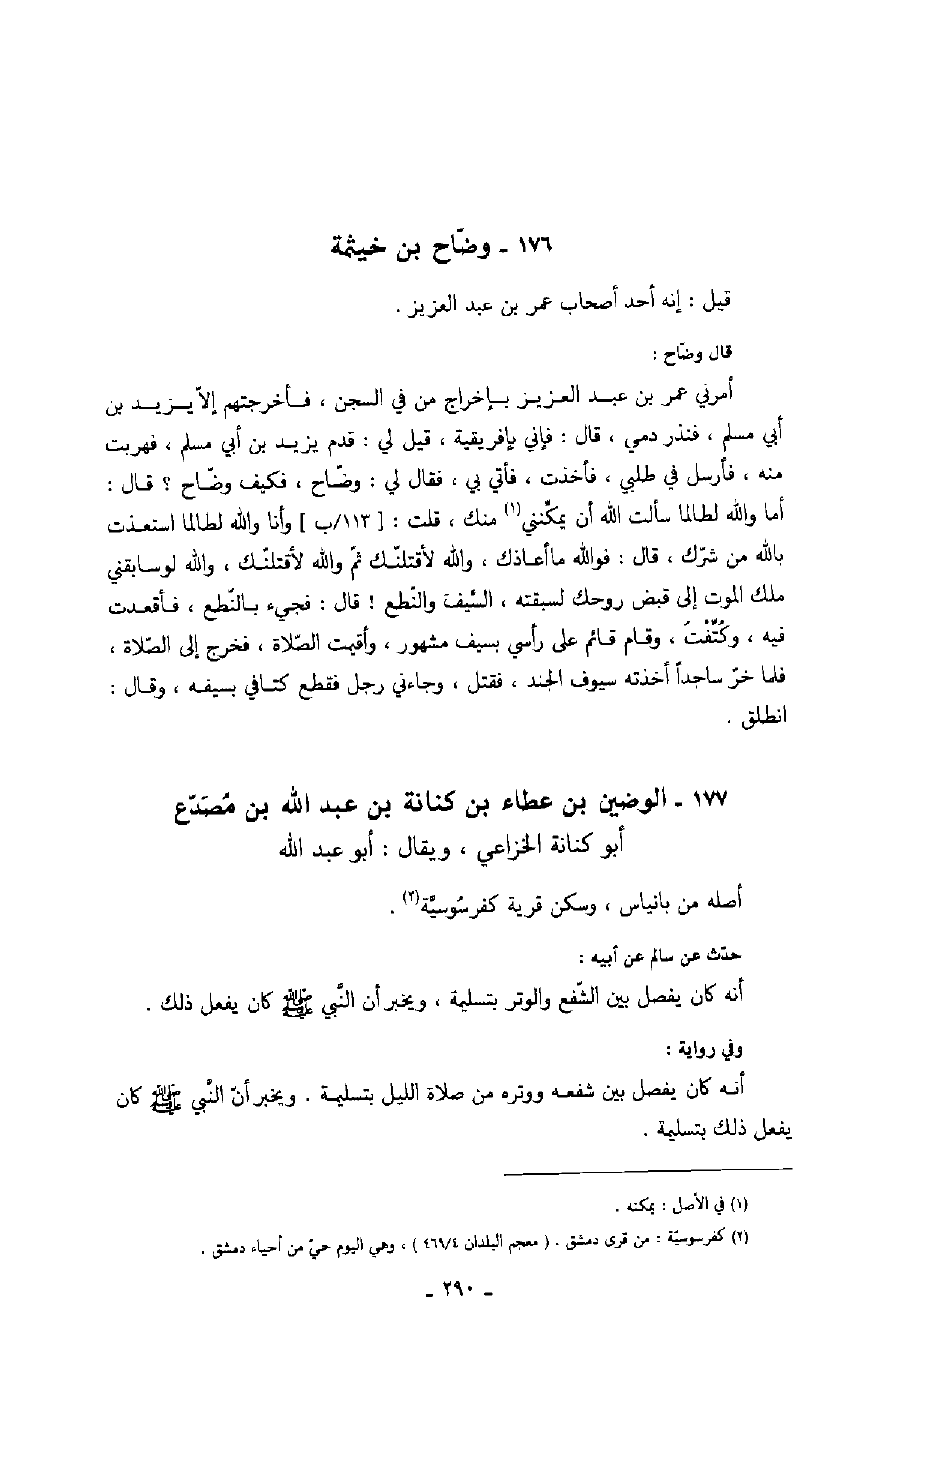 ١٧٦ ـ وضّاح بن خيثمة
قيل : إنه أحد أصحاب عمر بن عبد العزيز .
قال وضّاح :
أمرني عمر بن عبد العزيز بإخراج من في السجن ، فأخرجتهم إلاّ يزيد بن
أبي مسلم ، فنذر دمي ، قال : فإني بإفريقية ، قيل لي : قدم يزيد بن أبي مسلم ، فهربت
منه ، فأرسل في طلبي ، فأخذت ، فأتي بي ، فقال لي : وضّاح ، فكيف وضّاح ؟ قال :
أما والله لطالما سألت الله أن يمكّنني(١) منك ، قلت : [ ١١٣/ب ] وأنا والله لطالما استعذت
بالله من شرّك ، قال : فوالله ماأعاذك ، والله لأقتلنّك ثمّ والله لأقتلنّك ، والله لوسابقني
ملك الموت إلى قبض روحك لسبقته ، السَّيفَ والنّطع ! قال : فجيء بالنّطع ، فأقعدت
فيه ، وكُتِّفْتُ ، وقام قائم على رأسي بسيف مشهور ، وأقيمت الصّلاة ، فخرج إلى الصّلاة ،
فلما خرّ ساجداً أخذته سيوف الجند ، فقتل ، وجاءني رجل فقطع كتافي بسيفه ، وقال :
انطلق .
١٧٧ ـ الوضين بن عطاء بن كنانة بن عبد الله بن مُصَدّع
أبو كنانة الخزاعي ، ويقال : أبو عبد الله
أصله من بانياس ، وسكن قرية كفرسُوسيَّة(٢) .
حدّث عن سالم عن أبيه :
أنه كان يفصل بين الشّفع والوتر بتسليمة ، ويخبر أن النَّبي ﷺ كان يفعل ذلك .
وفي رواية :
أنه كان يفصل بين شفعه ووتره من صلاة الليل بتسليمة . ويخبر أنّ النَّبي ﷺ كان
يفعل ذلك بتسليمة .
(١) في الأصل : يمكنه .
(٢) كفرسوسيّة : من قرى دمشق . ( معجم البلدان ٤٦٩/٤ ) ، وهي اليوم حيّ من أحياء دمشق .
ـ ٢٩٠ ـ